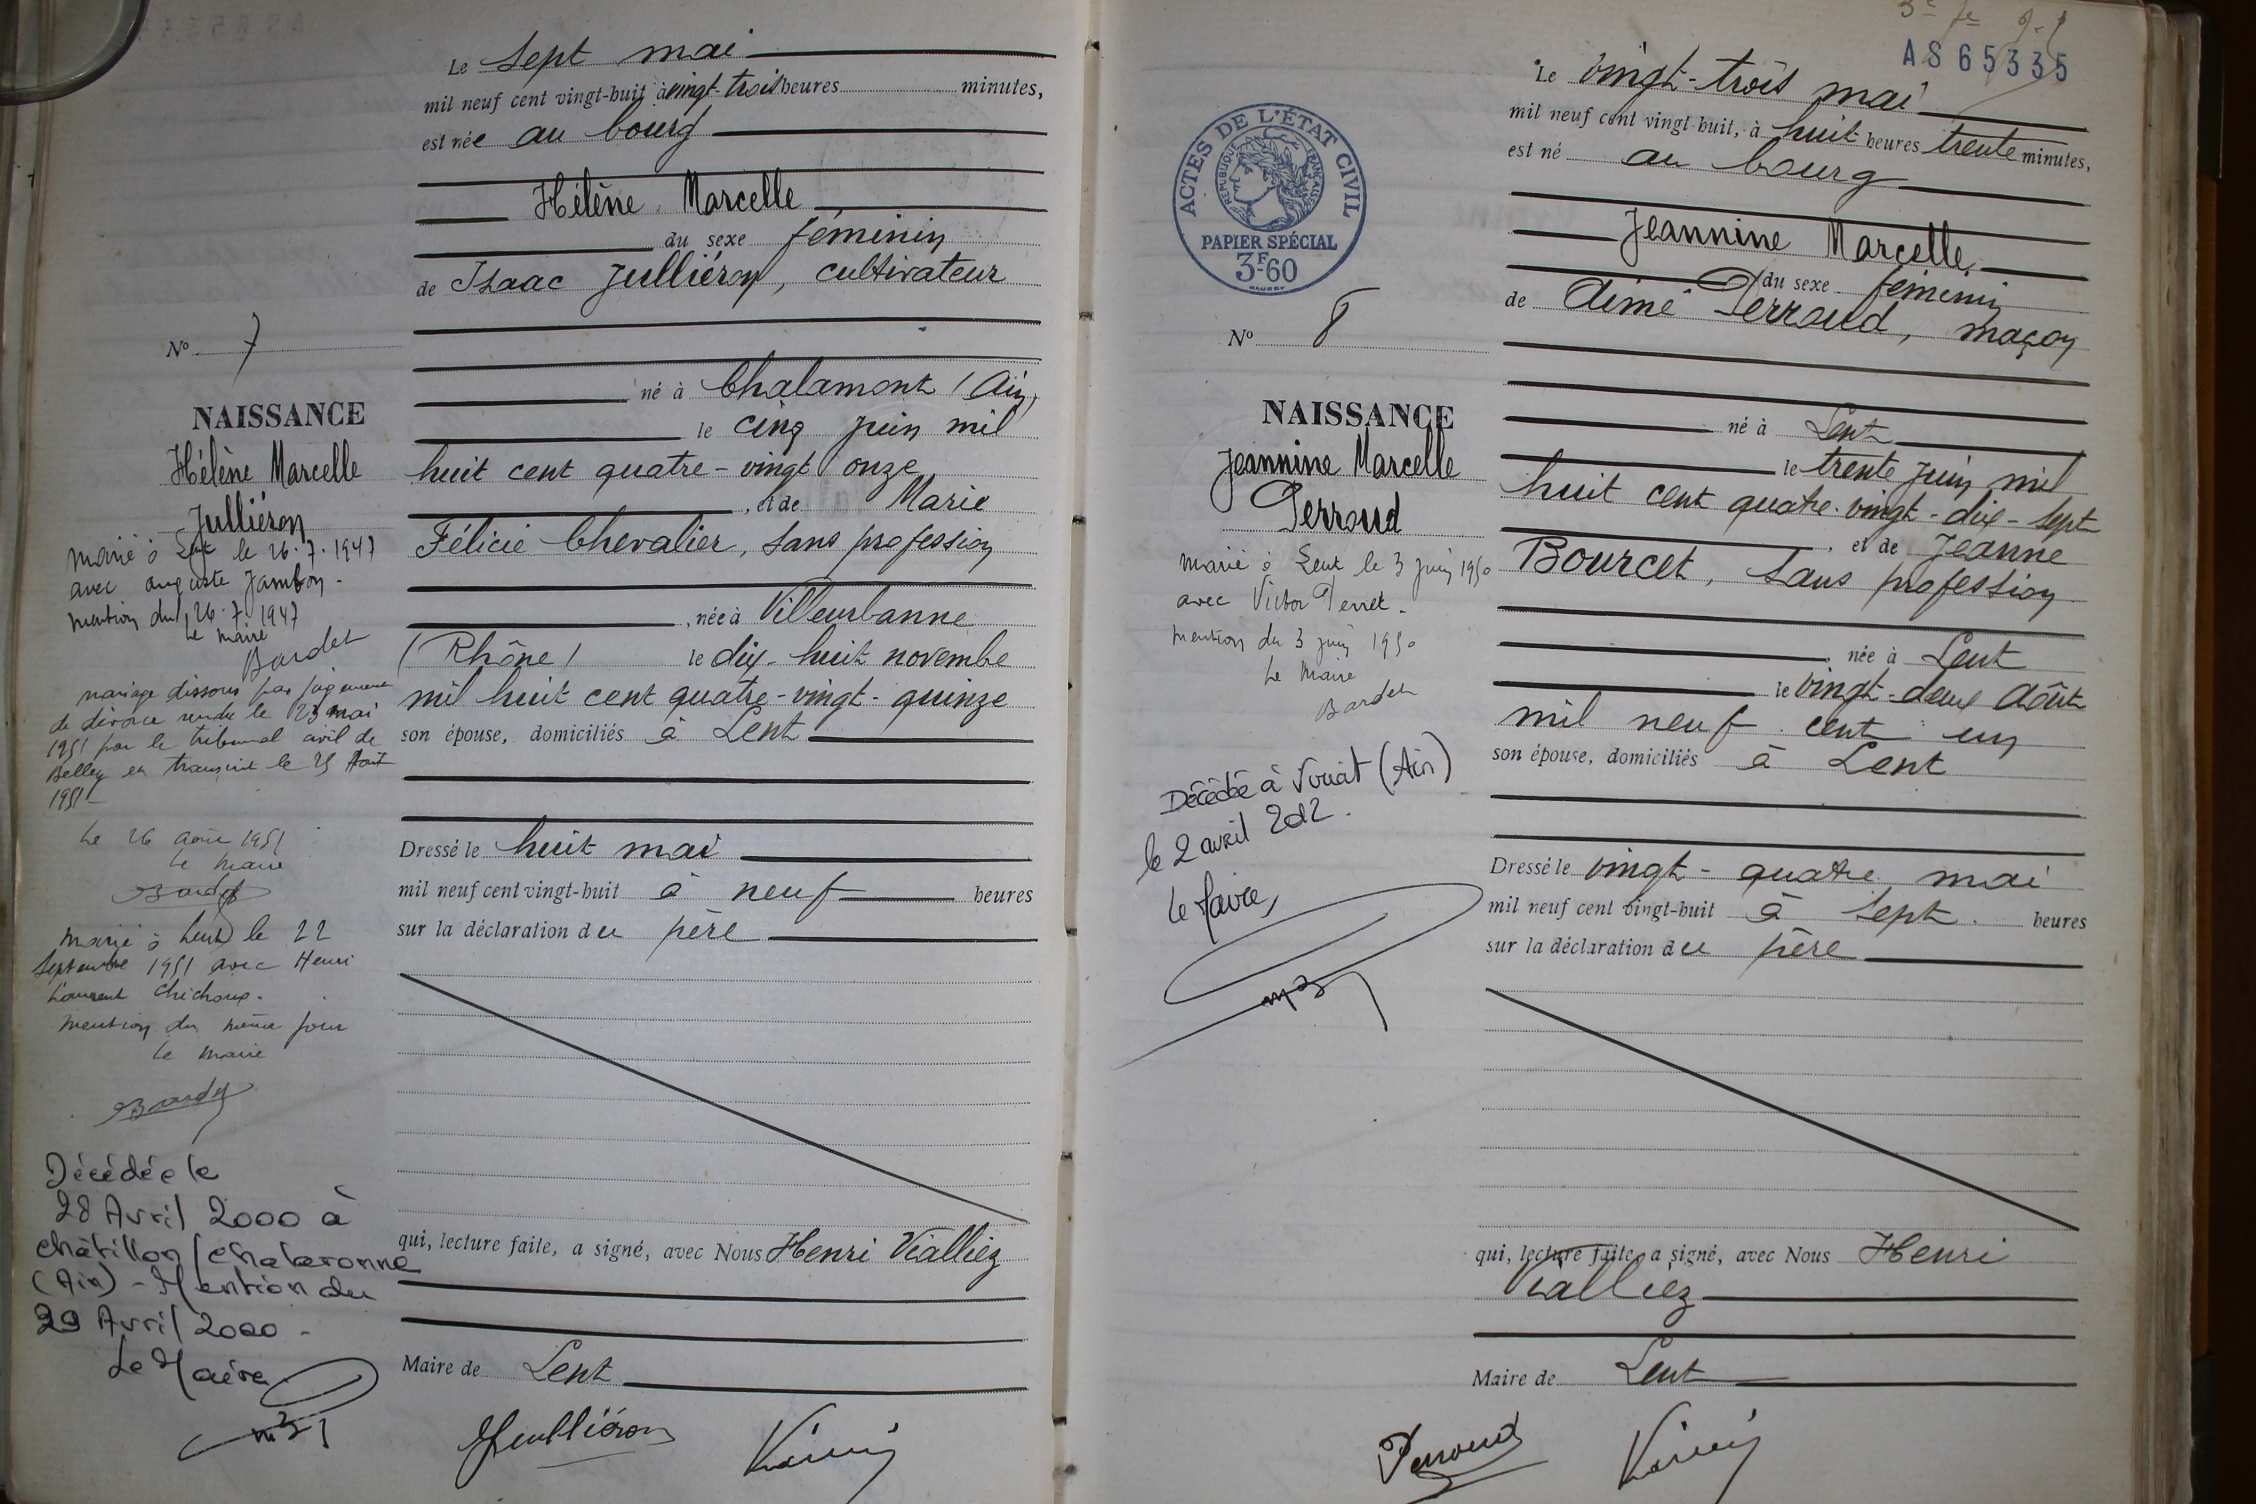 Le sept mai
mil neuf cent vingt-huit à vingt-trois heures minutes,
est née au bourg
Hélène Marcelle
du sexe féminin
de Isaac Julliéron, cultivateur
né à Chalamont (Ain)
le cinq juin mil
huit cent quatre-vingt onze
, et de Marie
Félicie Chevalier, sans profession
, née à Villeurbanne
(Rhône) le dix-huit novembre
mil huit cent quatre-vingt-quinze
son épouse, domiciliés à Lent
Dressé le huit mai
mil neuf cent vingt-huit à neuf heures
sur la déclaration du père
qui, lecture faite, a signé, avec Nous Henri Vialliez
Maire de Lent
Julliéron
No 7
NAISSANCE
Hélène Marcelle
Julliéron
Marié à Lent le 26.7.1947
avec Auguste Jambon -
mention du 26.7.1947
Le Maire
Bardet
mariage dissous par jugement
de divorce rendu le 23 mai
1951 par le tribunal civil de
Belley et transcrit le 25 Août
1951 -
Le 26 août 1951
Le Maire
Bardet
Marié à Lent le 22
Septembre 1951 avec Henri
Laurent Chichoux.
Mention du même jour
Le Maire
Bardet
Décédée le
28 Avril 2000 à
Châtillon/Chalaronne
(Ain) - Mention du
29 Avril 2000 -
Le Maire
A865335
ACTES DE L'ÉTAT CIVIL
RÉPUBLIQUE FRANÇAISE
PAPIER SPÉCIAL
3F60
Le vingt-trois mai
mil neuf cent vingt-huit, à huit heures trente minutes,
est né au bourg
Jeannine Marcelle
du sexe féminin
de Aimé Perroud, maçon
né à Lent
le trente juin mil
huit cent quatre-vingt-dix-sept
, et de Jeanne
Bourcet, sans profession
, née à Lent
le vingt-deux Août
mil neuf cent un
son épouse, domiciliés à Lent
Dressé le vingt-quatre mai
mil neuf cent vingt-huit à sept heures
sur la déclaration du père
qui, lecture faite, a signé, avec Nous Henri
Vialliez
Maire de Lent
Perroud
No 8
NAISSANCE
Jeannine Marcelle
Perroud
Marié à Lent le 3 juin 1950
avec Victor Perret -
Mention du 3 juin 1950
Le Maire
Bardet
Décédée à Viriat (Ain)
le 2 avril 2012.
Le Maire,